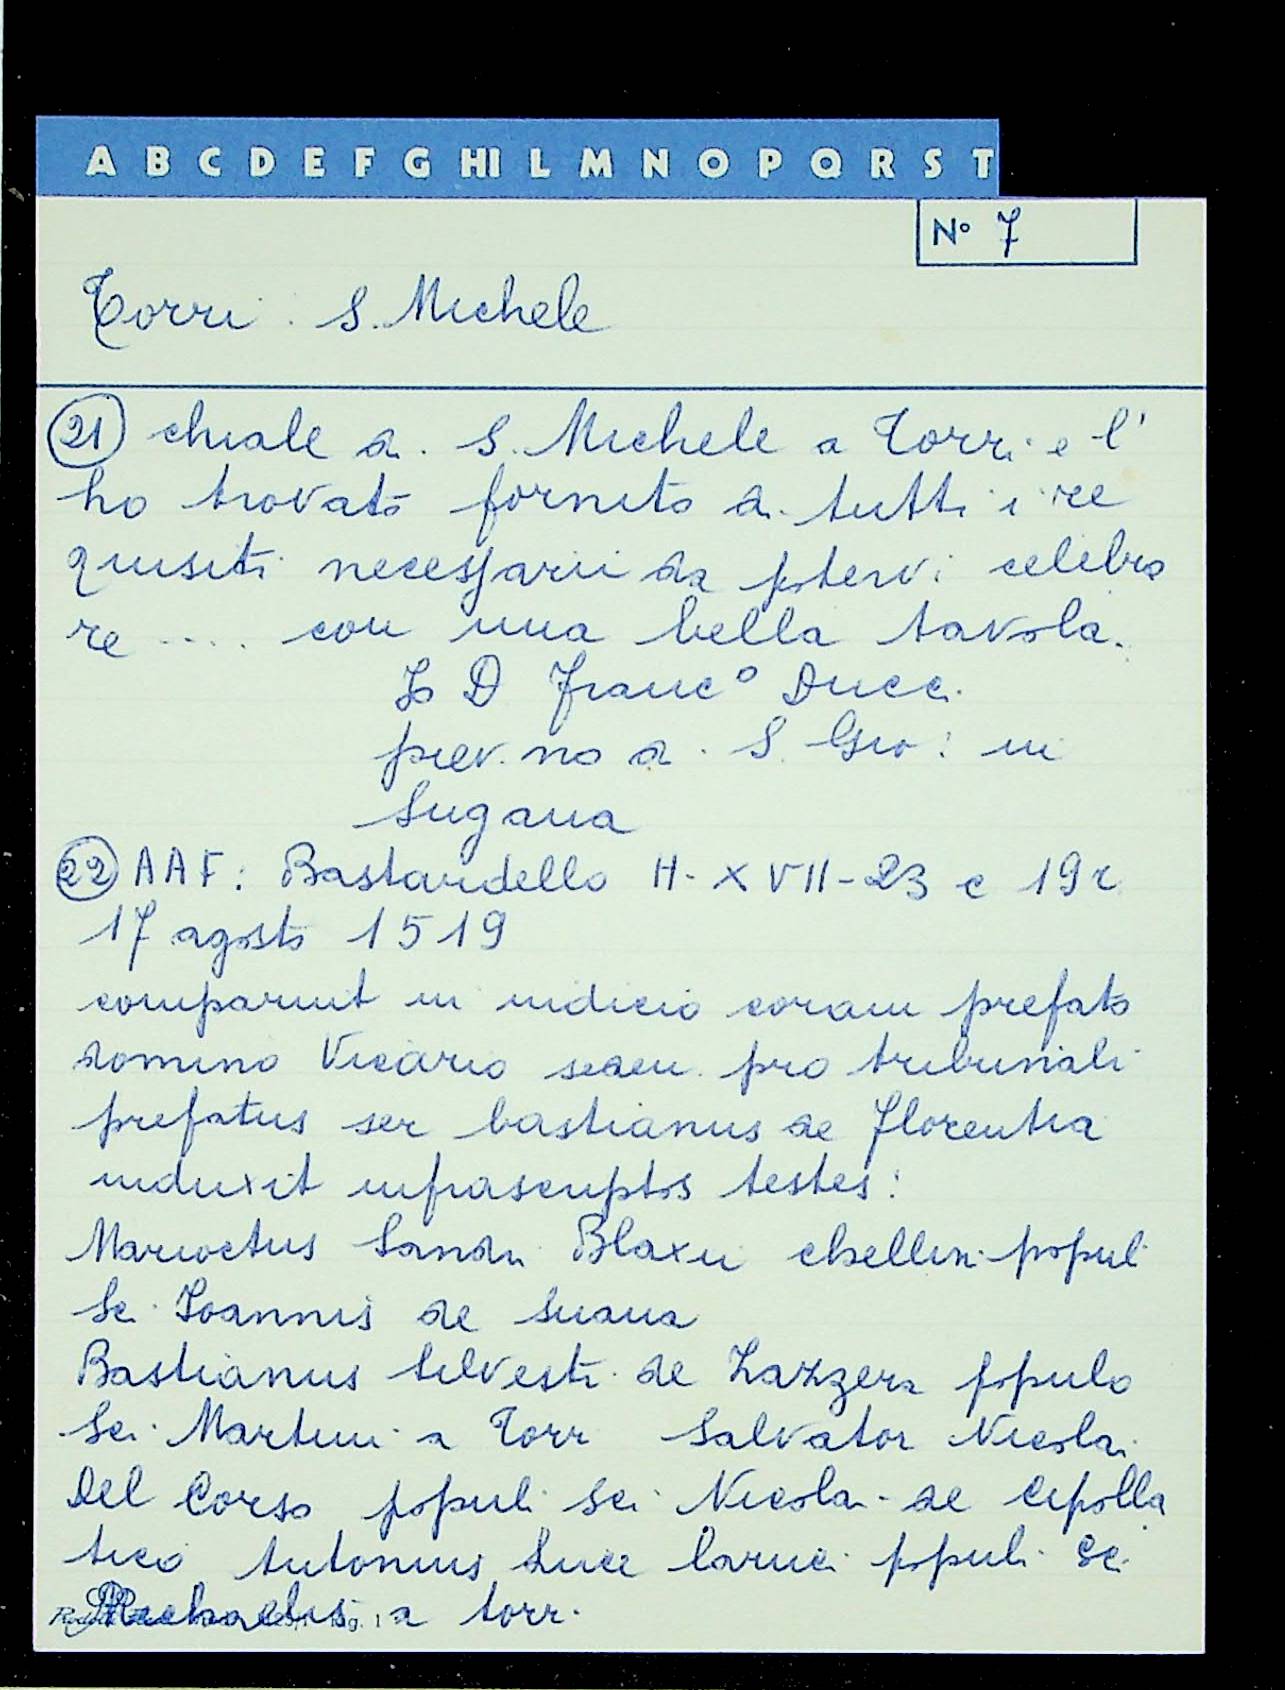 A B C D E F G HI L M N O P Q R S T
N° 7
Torri S. Michele
21 chiale di S. Michele a Torri e l'
ho trovato fornito di tutti i re
quisiti necessarii da potervi celebra
re .... con una bella tavola.
Io D Franc° Ducci
piev. no di S. Gio: in
Sugana
22 AAF: Bastardello H-XVII-23 c 19r
17 agosto 1519
comparuit in iudicio coram prefato
domino Vicario seden pro tribunali
prefatus ser bastianus de Florentia
induxit infrascriptos testes:
Marioctus Sandri Blaxii populi
Sci Ioannis de suana
Bastianus Silvestri de Lazzeri populo
Sci Martini a Torri Salvator Nicolai
Del Corso populi sci Nicolai de Cipolla
tico Antonius Luce populi Sci
Michaelis a torri